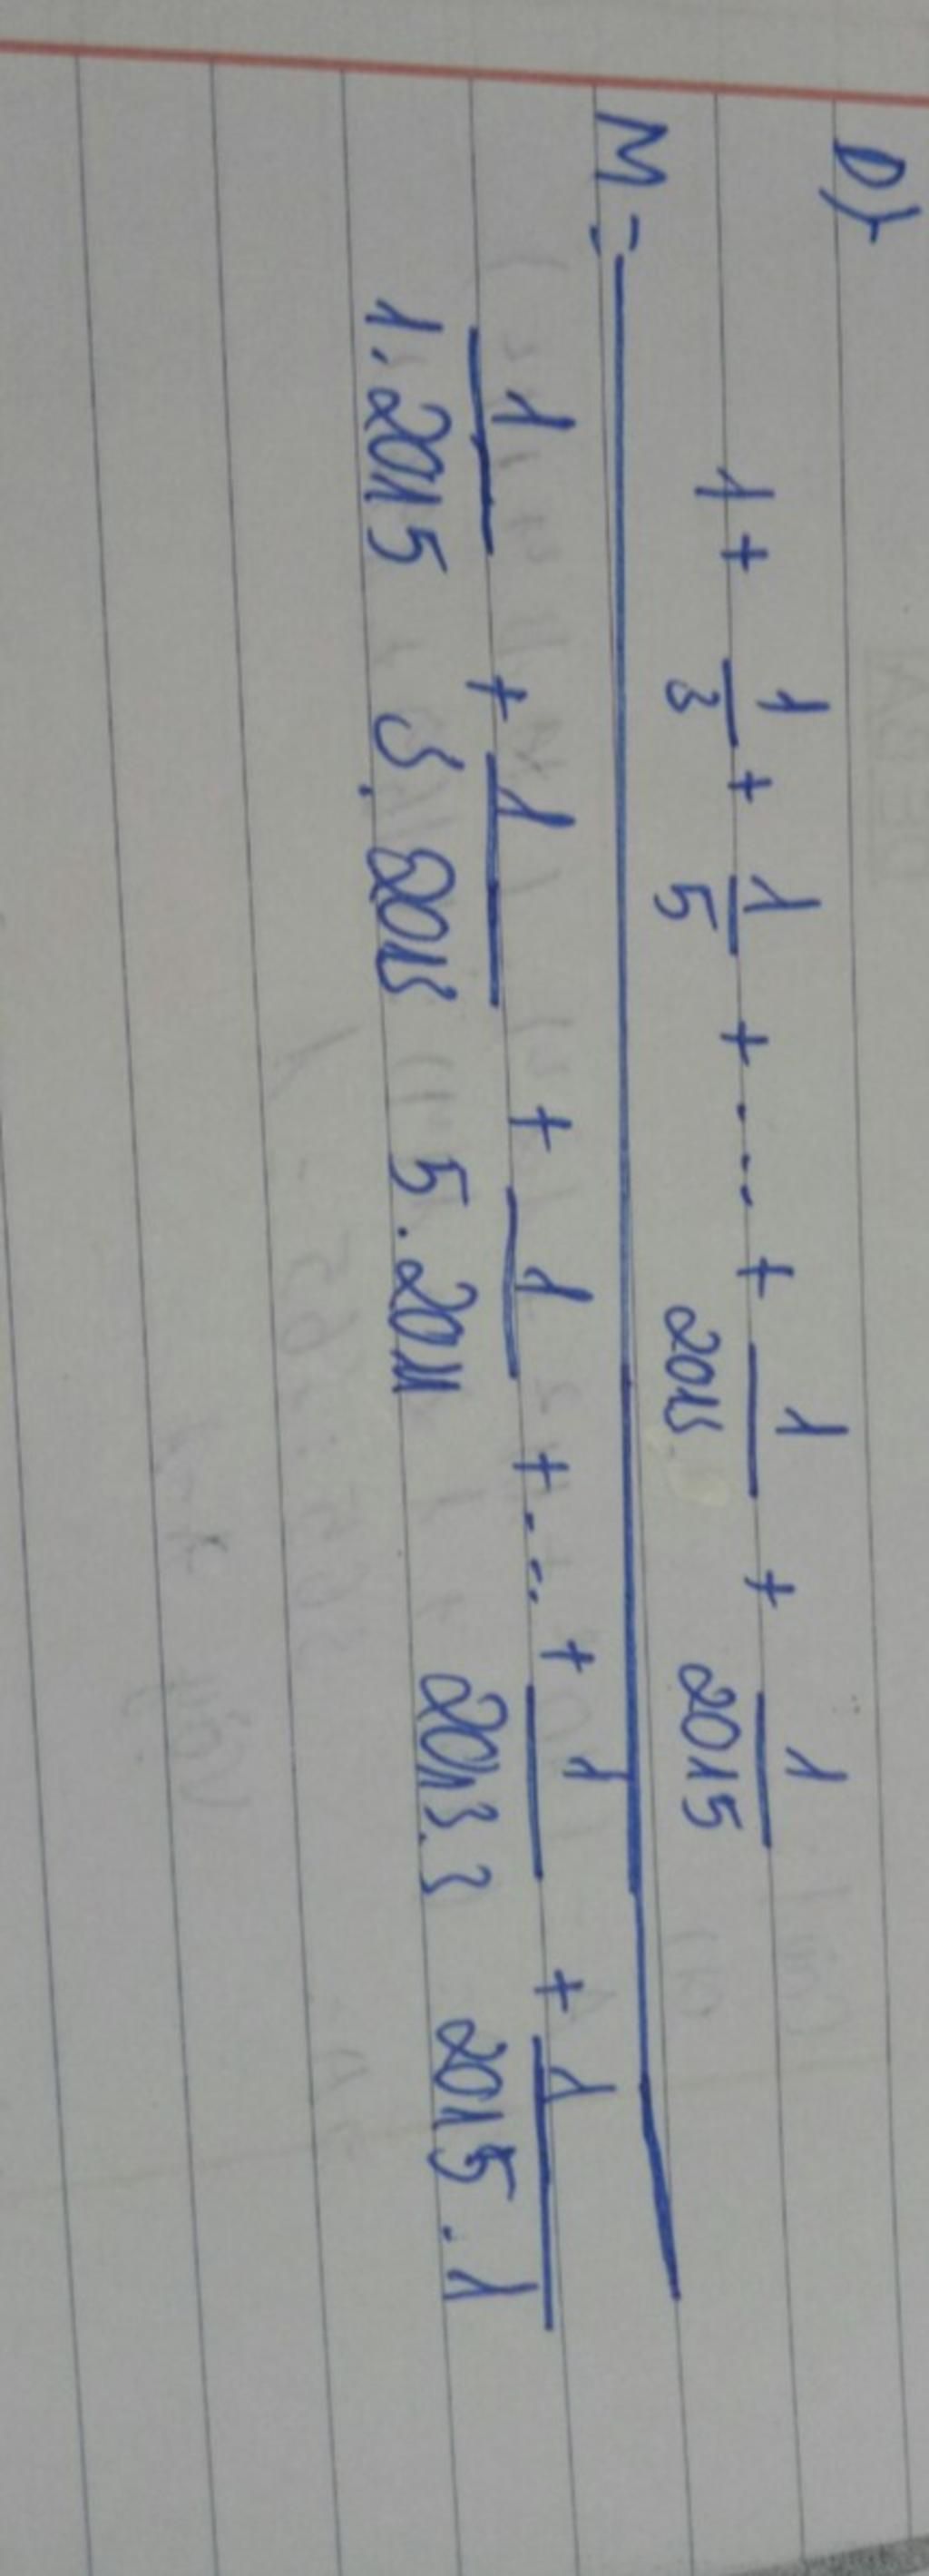 D)
1 + 1/3 + 1/5 + ... + 1/2013 + 1/2015
M = ─────────────
1/1.2015 + 1/3.2013 + 1/5.2011 + ... + 1/2013.3 + 1/2015.1